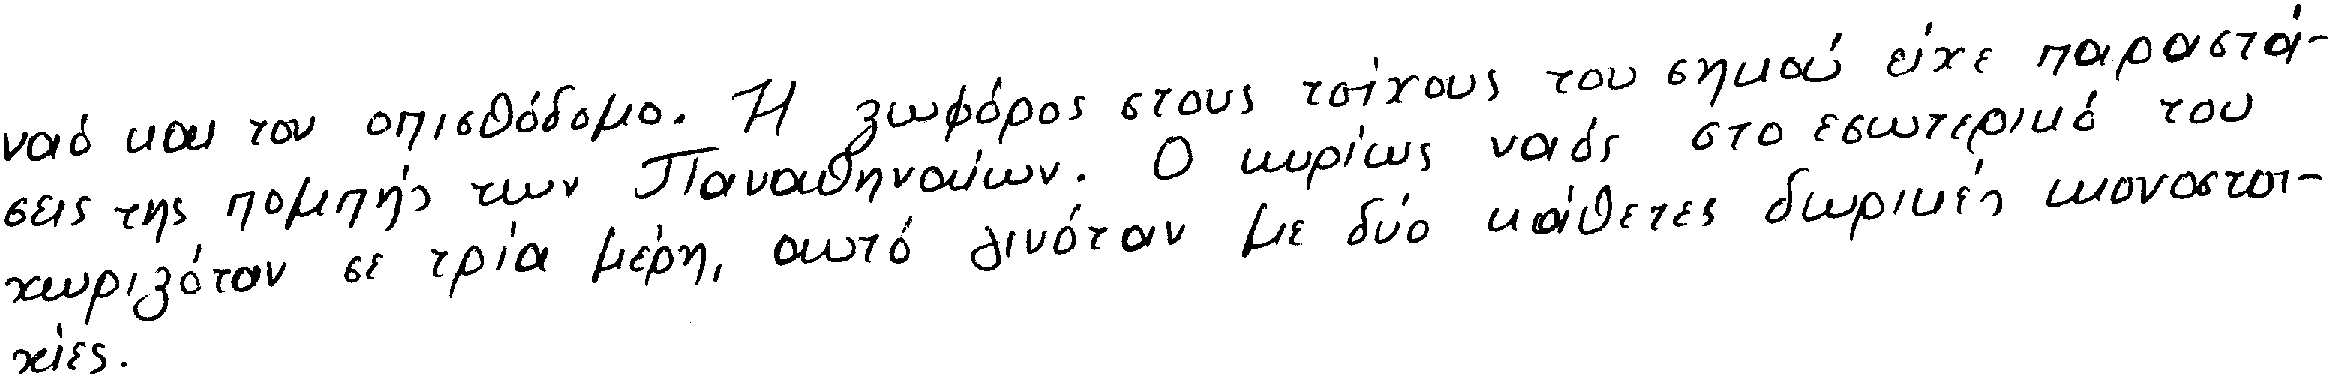 ναό και τον οπισθόδομο. Η ζωφόρος στους τοίχους του σηκού είχε παραστά-
σεις της πομπής των Παναθηναίων. Ο κυρίως ναός στο εσωτερικό του
χωριζόταν σε τρία μέρη, αυτό γινόταν με δύο κάθετες δωρικές κιονοστοι-
χίες.